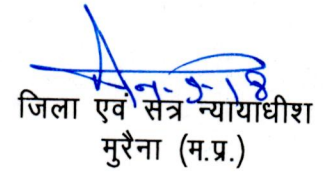 जिला एवं सत्र न्यायाधीश
मुरैना (म.प्र.)